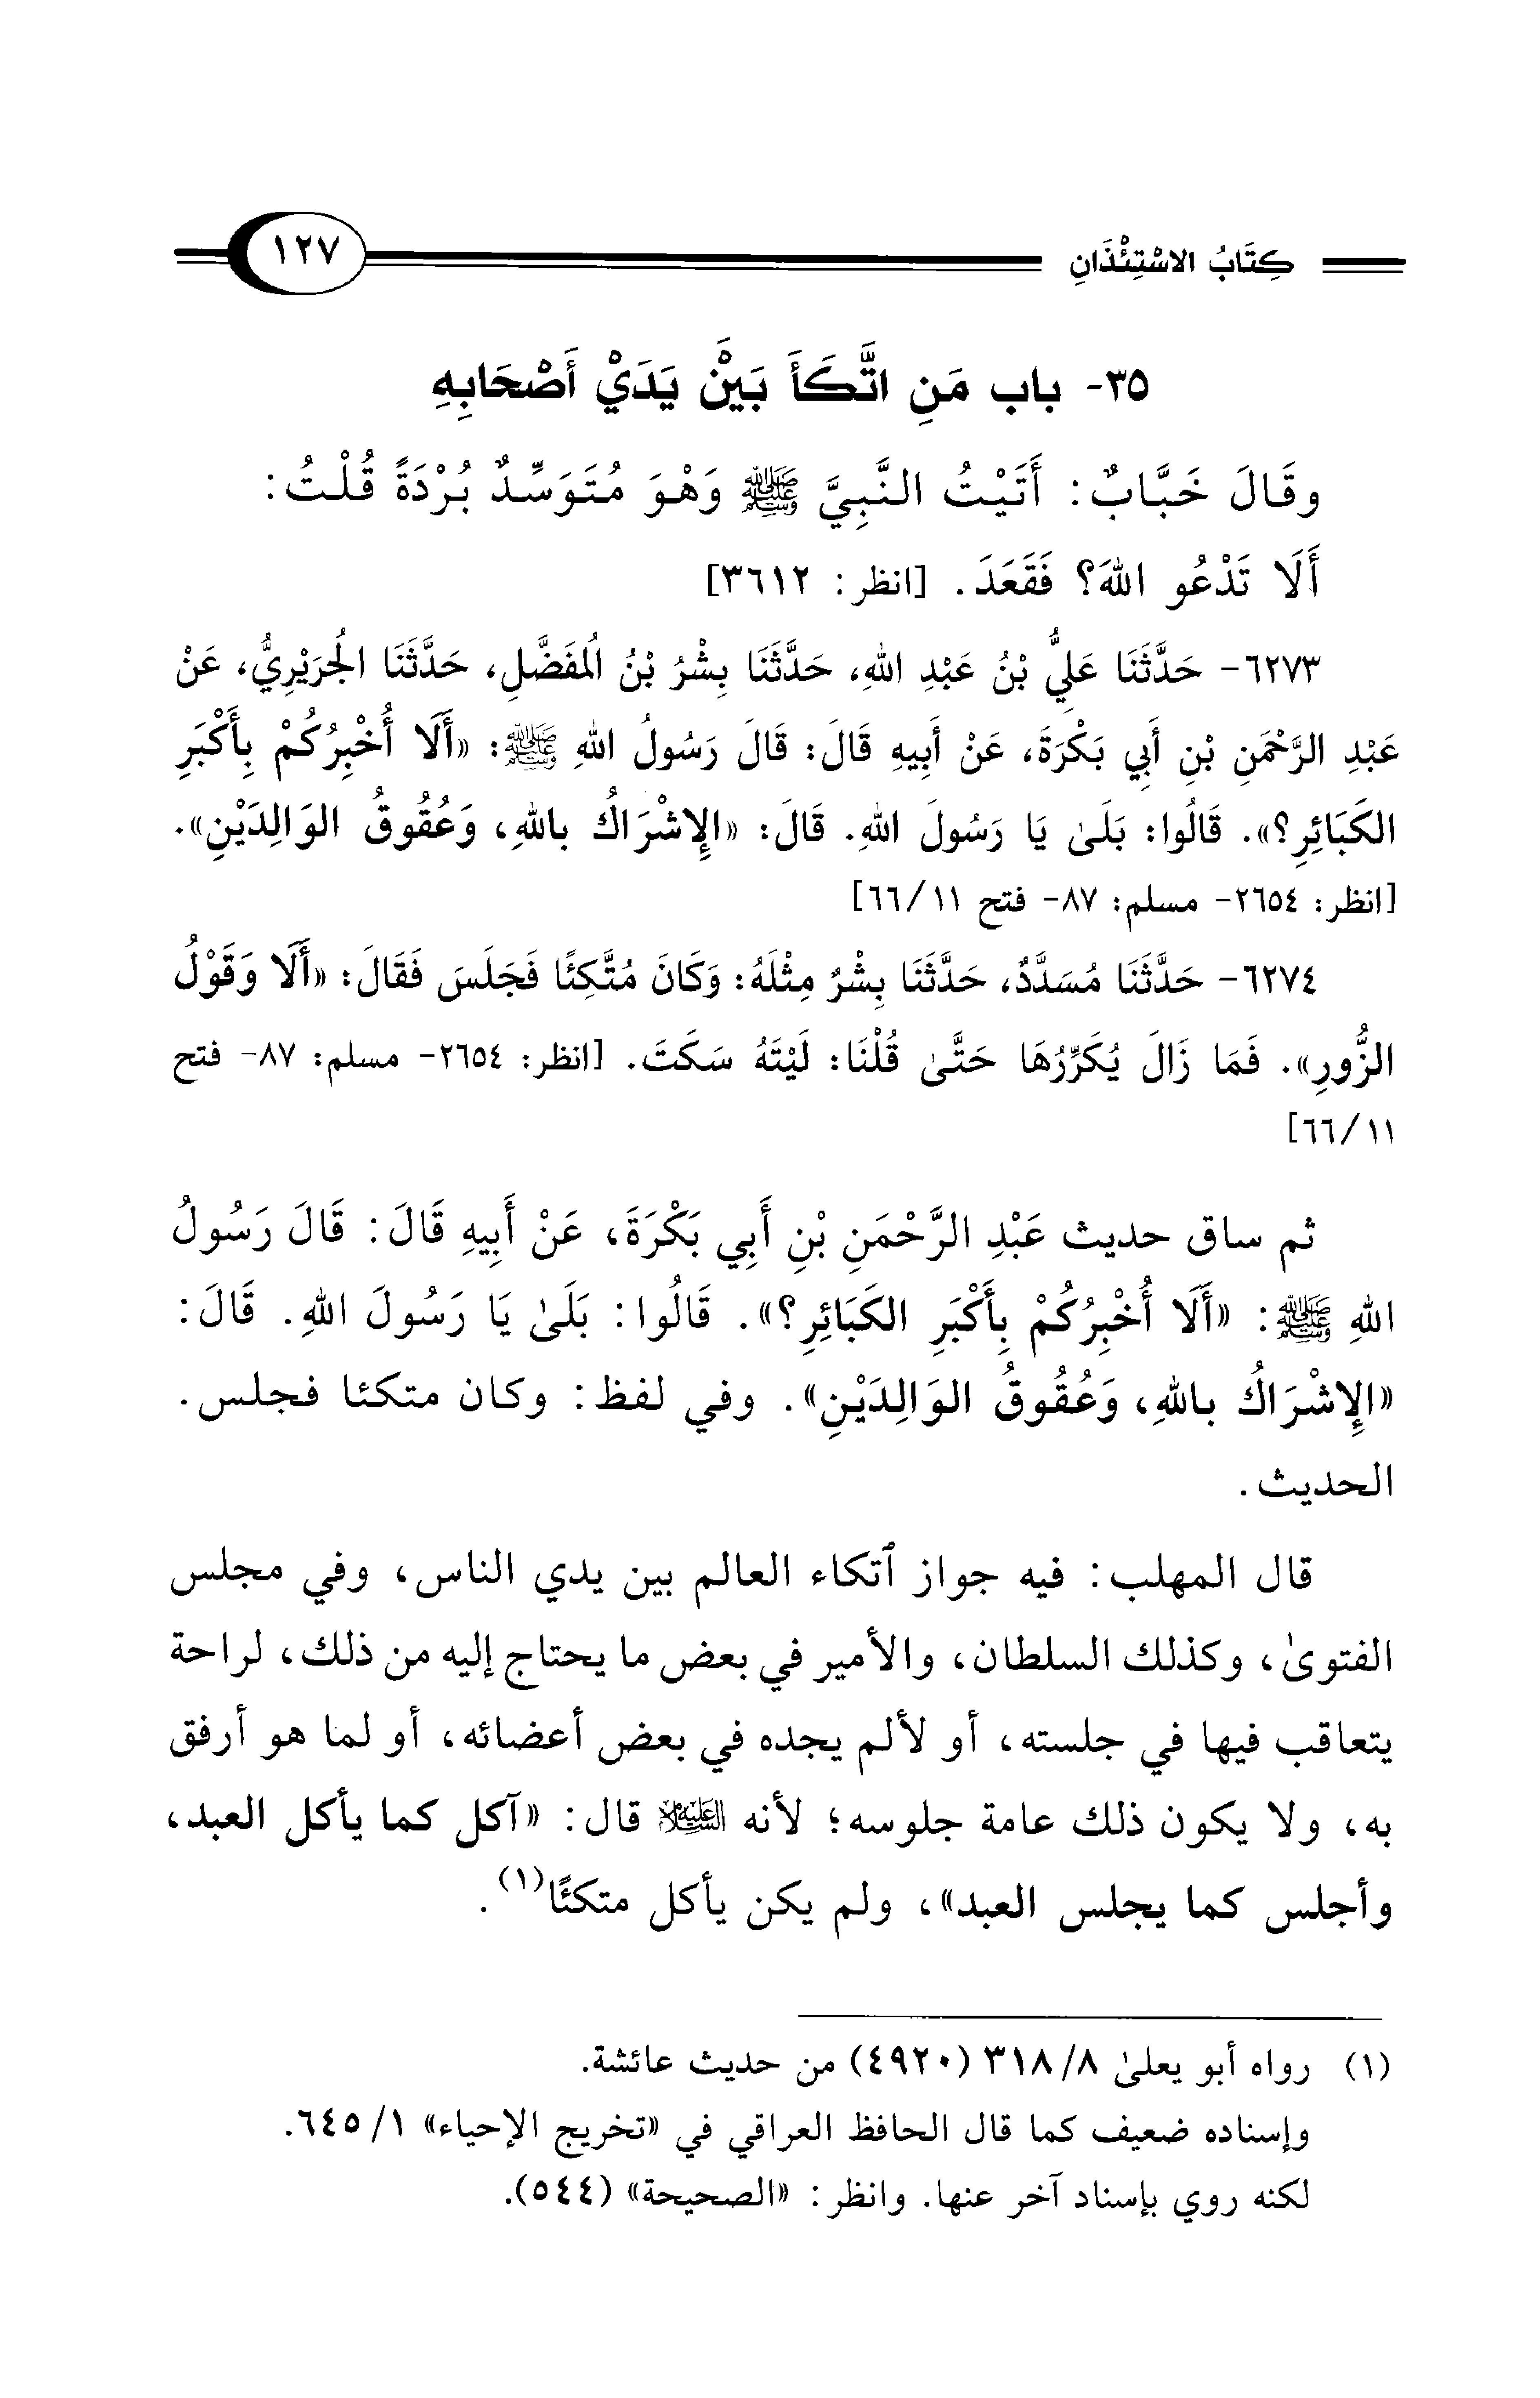 كِتَابُ الاسْتِئْذَانِ ١٢٧
٣٥- باب مَنِ اتَّكَأَ بَيْنَ يَدَيْ أَصْحَابِهِ
وقَالَ خَبَّابٌ: أَتَيْتُ النَّبِيَّ ﷺ وَهْوَ مُتَوَسِّدٌ بُرْدَةً قُلْتُ:
أَلَا تَدْعُو اللهَ؟ فَقَعَدَ. [انظر: ٣٦١٢]
٦٢٧٣- حَدَّثَنَا عَلِيُّ بْنُ عَبْدِ اللهِ، حَدَّثَنَا بِشْرُ بْنُ الُمفَضَّلِ، حَدَّثَنَا الُجرَيْرِيُّ، عَنْ
عَبْدِ الرَّحْمَنِ بْنِ أَبِي بَكْرَةَ، عَنْ أَبِيهِ قَالَ: قَالَ رَسُولُ اللهِ ﷺ: «أَلَا أُخْبِرُكُمْ بِأَكْبَرِ
الكَبَائِرِ؟». قَالُوا: بَلَىٰ يَا رَسُولَ اللهِ. قَالَ: «الإِشْرَاكُ باللهِ، وَعُقُوقُ الوَالِدَيْنِ».
[انظر: ٢٦٥٤- مسلم: ٨٧- فتح ١١/ ٦٦]
٦٢٧٤- حَدَّثَنَا مُسَدَّدٌ، حَدَّثَنَا بِشْرٌ مِثْلَهُ: وَكَانَ مُتَّكِئًا فَجَلَسَ فَقَالَ: «أَلَا وَقَوْلُ
الزُّورِ». فَمَا زَالَ يُكَرِّرُهَا حَتَّىٰ قُلْنَا: لَيْتَهُ سَكَتَ. [انظر: ٢٦٥٤- مسلم: ٨٧- فتح
١١/ ٦٦]
ثم ساق حديث عَبْدِ الرَّحْمَنِ بْنِ أَبِي بَكْرَةَ، عَنْ أَبِيهِ قَالَ: قَالَ رَسُولُ
اللهِ ﷺ: «أَلَا أُخْبِرُكُمْ بِأَكْبَرِ الكَبَائِرِ؟». قَالُوا: بَلَىٰ يَا رَسُولَ اللهِ. قَالَ:
«الإِشْرَاكُ باللهِ، وَعُقُوقُ الوَالِدَيْنِ». وفي لفظ: وكان متكئا فجلس.
الحديث.
قال المهلب: فيه جواز ٱتكاء العالم بين يدي الناس، وفي مجلس
الفتوىٰ، وكذلك السلطان، والأمير في بعض ما يحتاج إليه من ذلك، لراحة
يتعاقب فيها في جلسته، أو لألم يجده في بعض أعضائه، أو لما هو أرفق
به، ولا يكون ذلك عامة جلوسه؛ لأنه العَلَيْهِ السَّلام قال: «آكل كما يأكل العبد،
وأجلس كما يجلس العبد»، ولم يكن يأكل متكئًا(١).
(١) رواه أبو يعلىٰ ٨/ ٣١٨ (٤٩٢٠) من حديث عائشة.
وإسناده ضعيف كما قال الحافظ العراقي في «تخريج الإحياء» ١/ ٦٤٥.
لكنه روي بإسناد آخر عنها. وانظر: «الصحيحة» (٥٤٤).